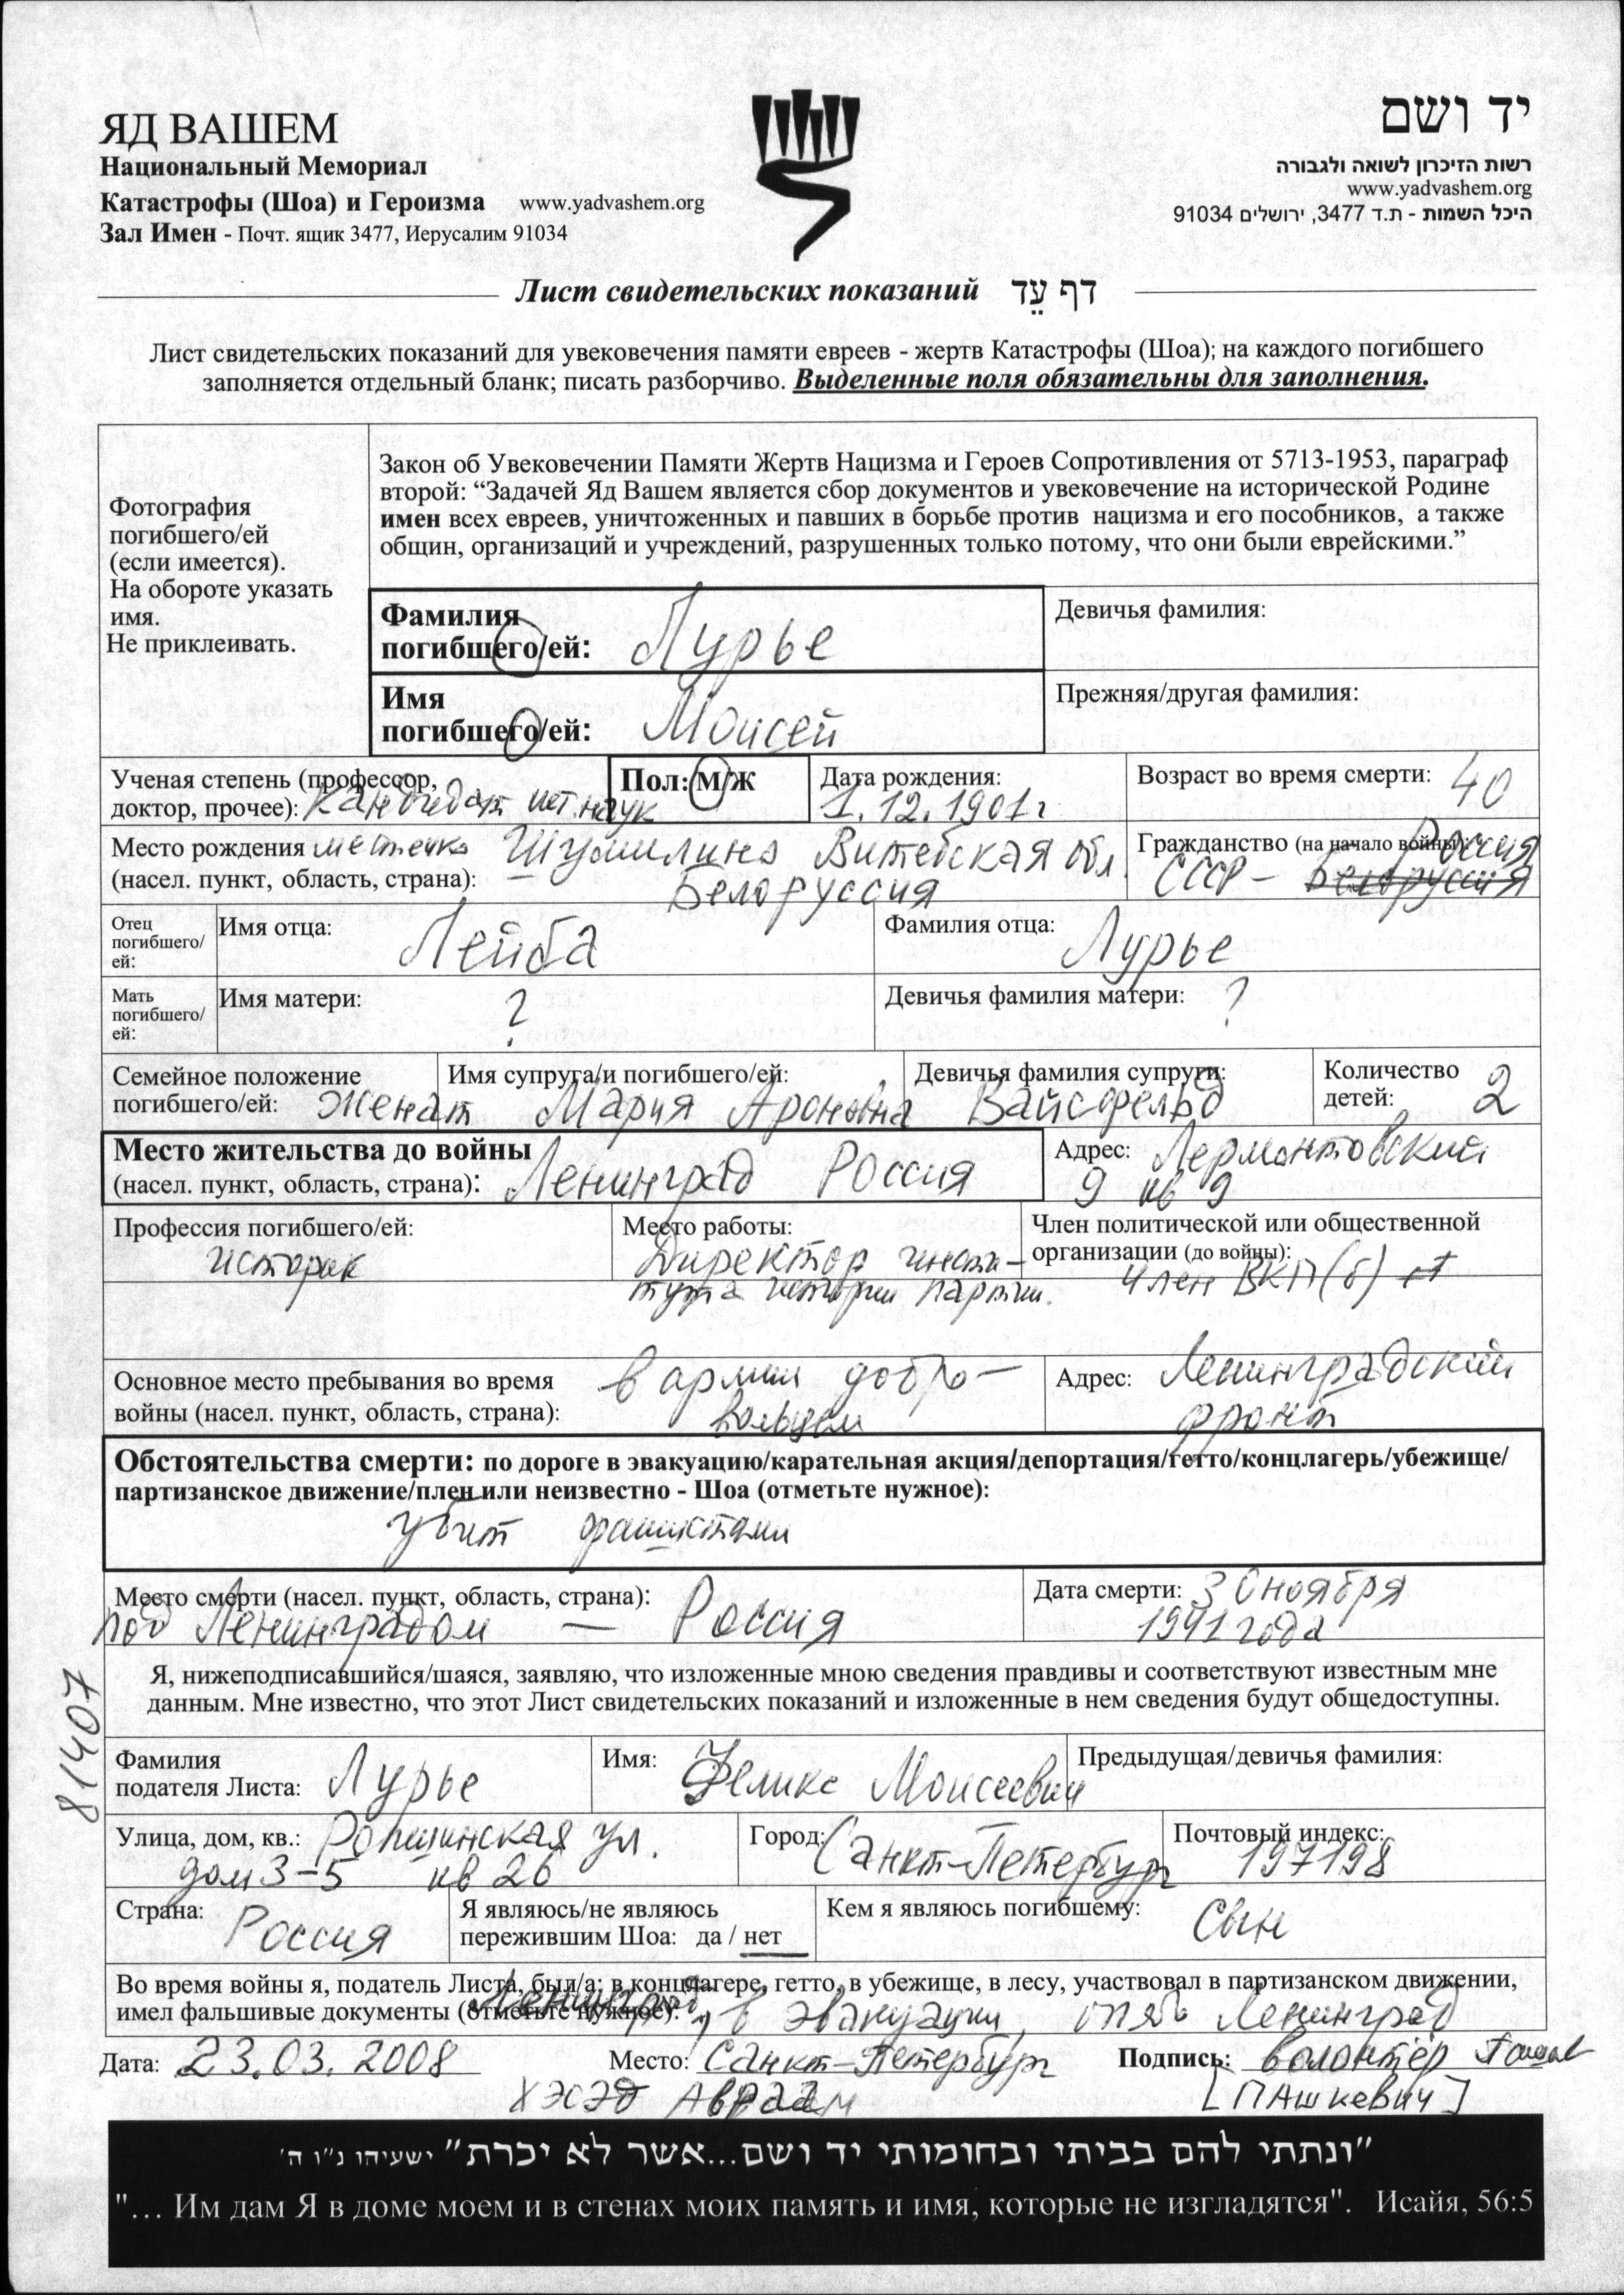 ЯД ВАШЕМ
Национальный Мемориал
Катастрофы (Шоа) и Героизма www.yadvashem.org
Зал Имен - Почт. ящик 3477, Иерусалим 91034
יד ושם
רשות הזיכרון לשואה ולגבורה
www.yadvashem.org
היכל השמות - ת.ד 3477, ירושלים 91034
Лист свидетельских показаний דף עֵד
Лист свидетельских показаний для увековечения памяти евреев - жертв Катастрофы (Шоа); на каждого погибшего
заполняется отдельный бланк; писать разборчиво. Выделенные поля обязательны для заполнения.
Фотография
погибшего/ей
(если имеется).
На обороте указать
имя.
Не приклеивать.
Закон об Увековечении Памяти Жертв Нацизма и Героев Сопротивления от 5713-1953, параграф
второй: “Задачей Яд Вашем является сбор документов и увековечение на исторической Родине
имен всех евреев, уничтоженных и павших в борьбе против нацизма и его пособников, а также
общин, организаций и учреждений, разрушенных только потому, что они были еврейскими.”
Фамилия
погибшего/ей: Лурье
Девичья фамилия:
Имя
погибшего/ей: Моисей
Прежняя/другая фамилия:
Ученая степень (профессор,
доктор, прочее): Кандидат ист. наук
Пол: М/Ж
Дата рождения:
1.12.1901г
Возраст во время смерти: 40
Место рождения местечко Шумилино Витебская обл.
(насел. пункт, область, страна): Белоруссия
Гражданство (на начало войны): Россия
СССР - Белоруссия
Отец
погибшего/
ей:
Имя отца: Лейба
Фамилия отца: Лурье
Мать
погибшего/
ей:
Имя матери: ?
Девичья фамилия матери: ?
Семейное положение
погибшего/ей: Женат
Имя супруга/и погибшего/ей:
Мария Ароновна
Девичья фамилия супруги:
Вайсфельд
Количество
детей: 2
Место жительства до войны
(насел. пункт, область, страна): Ленинград Россия
Адрес: Лермонтовский
9 кв 9
Профессия погибшего/ей:
историк
Место работы:
Директор инсти-
тута истории партии.
Член политической или общественной
организации (до войны):
член ВКП(б)
Основное место пребывания во время
войны (насел. пункт, область, страна):
в армии добро-
вольцем
Адрес: Ленинградский
фронт
Обстоятельства смерти: по дороге в эвакуацию/карательная акция/депортация/гетто/концлагерь/убежище/
партизанское движение/плен или неизвестно - Шоа (отметьте нужное):
убит фашистами
Место смерти (насел. пункт, область, страна):
под Ленинградом — Россия
Дата смерти: 30 ноября
1941 года
Я, нижеподписавшийся/шаяся, заявляю, что изложенные мною сведения правдивы и соответствуют известным мне
данным. Мне известно, что этот Лист свидетельских показаний и изложенные в нем сведения будут общедоступны.
81407
Фамилия
подателя Листа: Лурье
Имя: Феликс Моисеевич
Предыдущая/девичья фамилия:
Улица, дом, кв.: Ропшинская ул.
дом 3-5 кв 26
Город: Санкт-Петербург
Почтовый индекс:
197198
Страна: Россия
Я являюсь/не являюсь
пережившим Шоа: да / нет
Кем я являюсь погибшему: Сын
Во время войны я, податель Листа, был/а: в концлагере, гетто, в убежище, в лесу, участвовал в партизанском движении,
имел фальшивые документы (отметьте нужное): Ленинград, в эвакуации, опять Ленинград
Дата: 23.03.2008 Место: Санкт-Петербург Подпись: волонтёр
ХЭСЭД Авраам [ПАшкевич]
"ונתתי להם בביתי ובחומותי יד ושם...אשר לא יכרת" ישעיהו נ"ו ה'
"... Им дам Я в доме моем и в стенах моих память и имя, которые не изгладятся". Исайя, 56:5